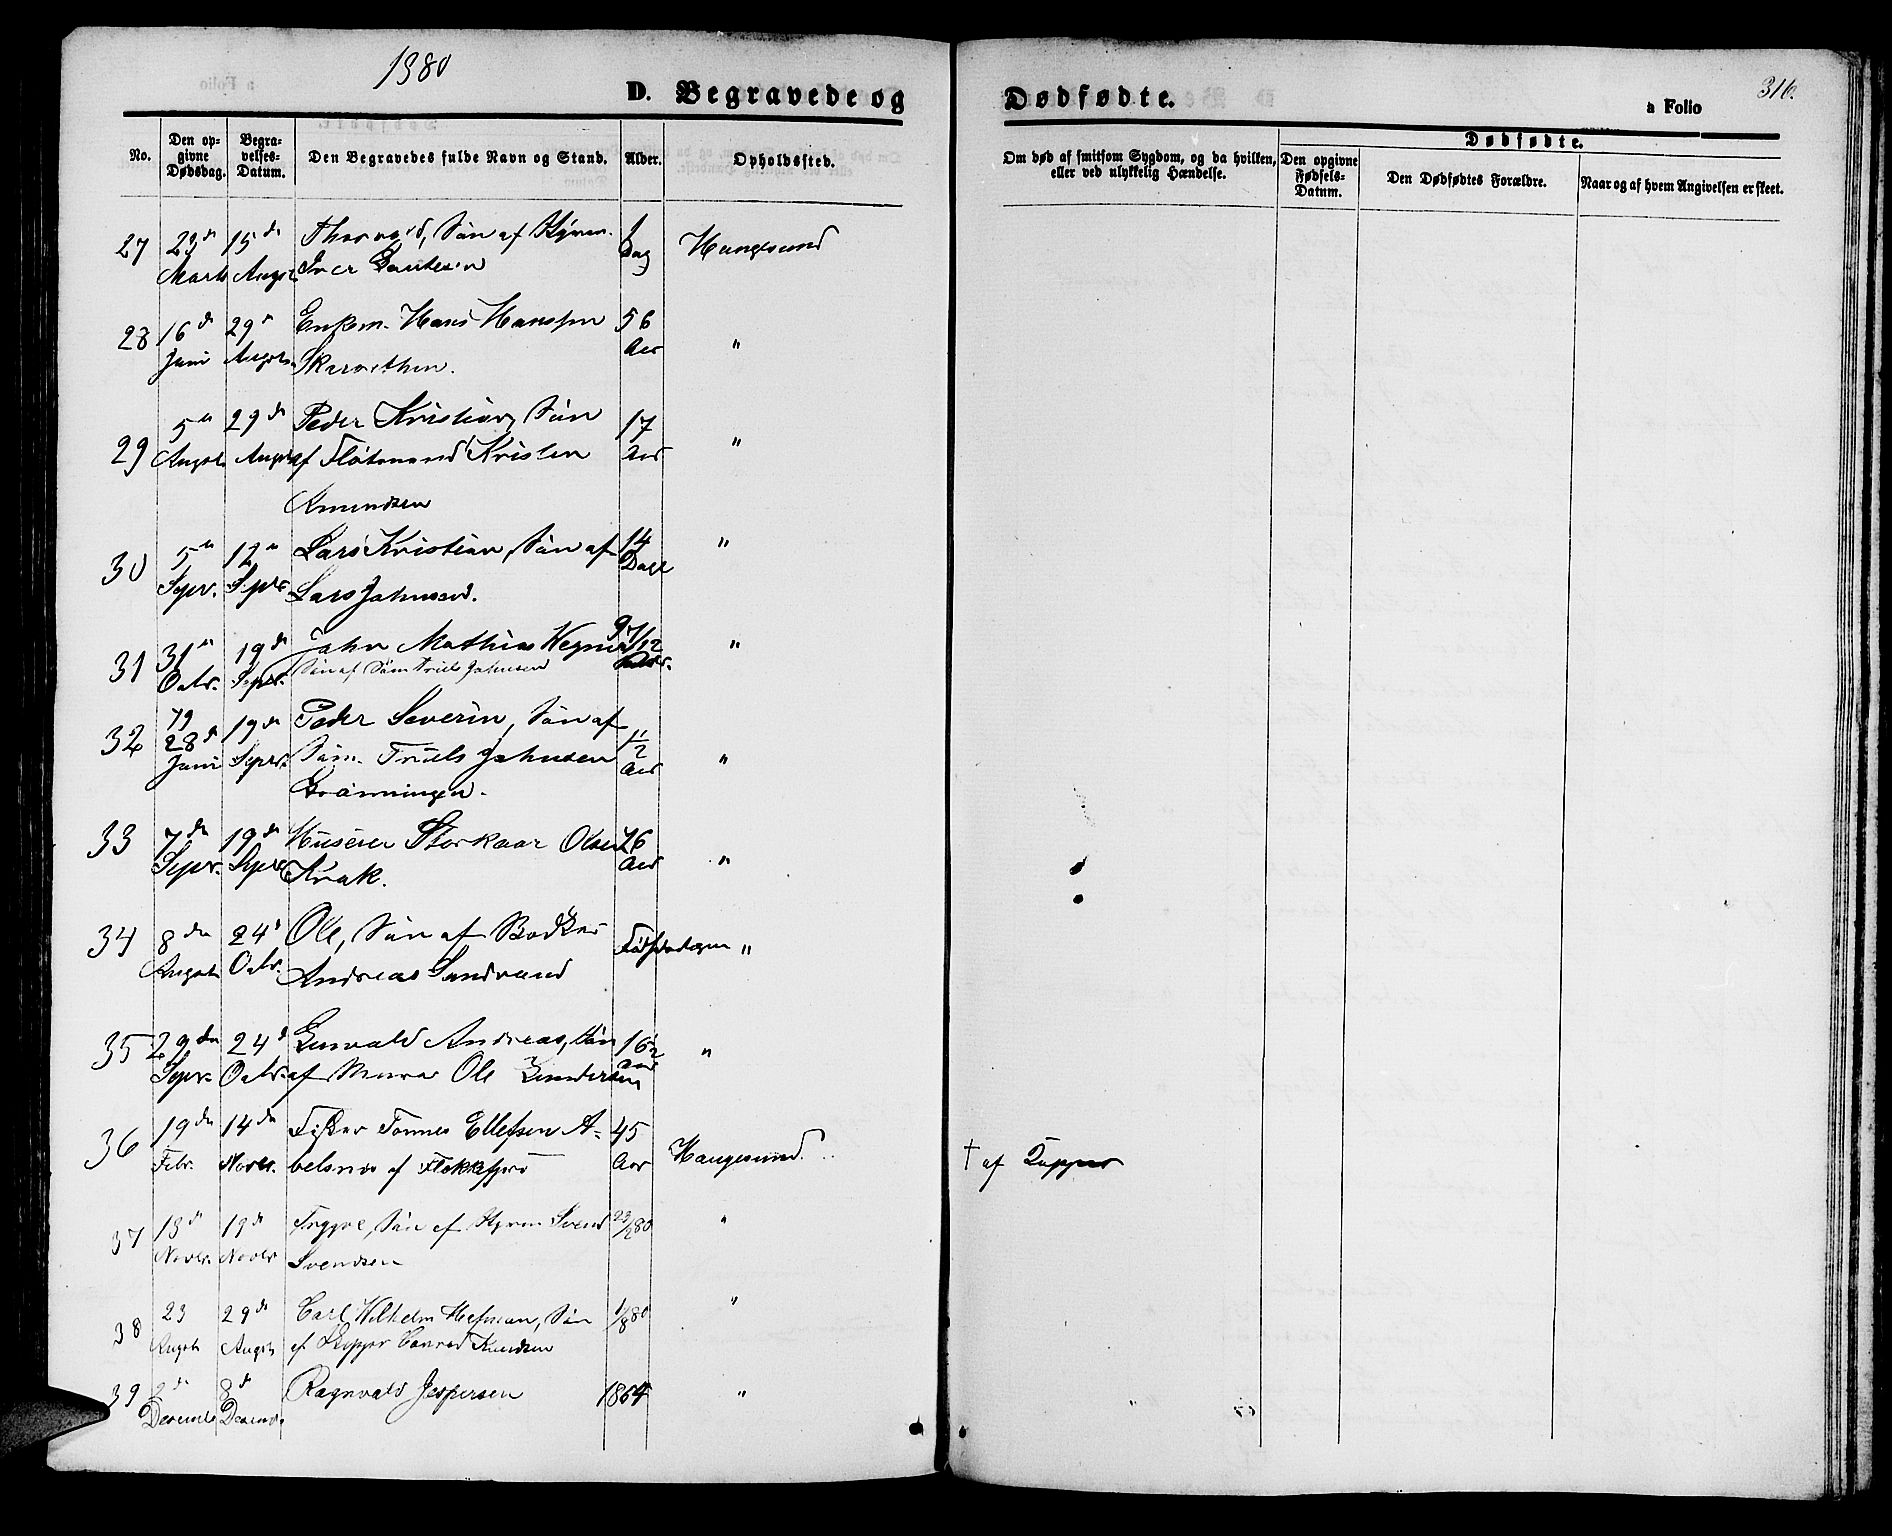 1880
D. Begravede og
Dødfødte.
316.
a Folio
No.
Den opgivne Dødsdag.
Begravelses-Datum.
Den Begravedes fulde Navn og Stand.
Alder.
Opholdssted.
Om død af smitsom Sygdom, og da hvilken, eller ved ulykkelig Hændelse.
Dødfødte.
Den opgivne Fødsels-Datum.
Den Dødfødtes Forældre.
Naar og af hvem Angivelsen er skeet.
27 23de 15de Thorvald, Søn af Styrm. 1 Haugesund
Marts Augst Iver Gautesen Dag
28 16de 29de Enkem. Hans Hanssen 56 "
Juni Augst. Skarvethen. Aar
29 5te 29de Peder Kristian, Søn 17 "
Augst. Augst. af Flötmand Kristen Aar
Amundsen
30 5te 12te Lars Kristian, Søn af 14 "
Sepr. Sepr. Lars Johnsen. Dage
31 31te 19de John Mathias Wegner 9 7/12 "
Octr. Sepr. Søn af Søm. Troels Johnsen
32 79
28de 19de Peder Severin, Søn af "
Juni Sepr. Søm. Troels Johnsen Aar
Grönningen.
33 7de 19de Huseier Storkaar Olsen 76 "
Sepr. Sepr. Krak. Aar
34 8de 24de Ole, Søn af Bødker Fødselsdagen "
Augst. Octr. Andreas Sundvand
35 29de 24de Gunvald Andreas, Søn 16½ "
Sepr. Octr. af Murer Ole Gundersen Aar
36 19de 14de Fisker Tønnes Ellefsen A- 45 Haugesund.
Febr. Novbr. belsnes af Flekkefjord Aar † af Kopper
37 18de 19de Trygve, Søn af Styrm Svend 23/280 "
Novbr. Novbr Svendsen
38 23 29de Carl Wilhelm Hefman, Søn 1/880 "
Augst. Augst. af Skipper Conrad Knudsen
39 2de 8de Ragnvald Jespersen 1864 "
Decembr Decembr